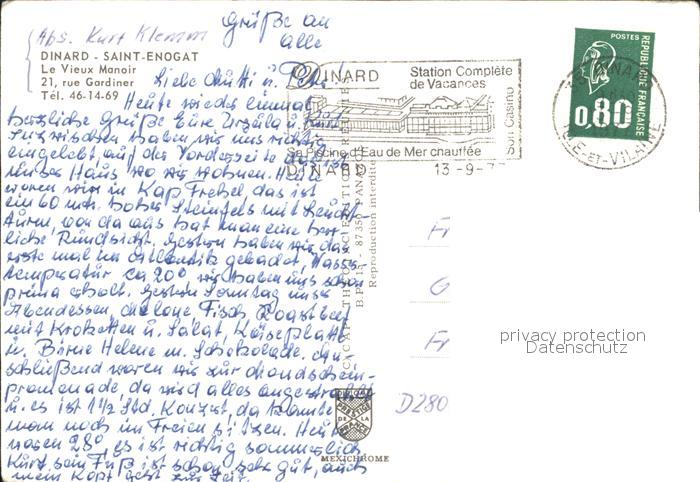 Grüße an
alle
Abs. Kurt Klemm
DINARD - SAINT-ENOGAT
Le Vieux Manoir
21, rue Gardiner
Tél. 46-14-69
Liebe Mutti u.
Heute wieder einmal
herzliche Grüße Eure Ursula u. Kurt
Inzwischen haben wir uns richtig
eingelebt auf der Vorderseite
unser Haus wo wir wohnen. Heute
waren wir in Kap Frehel das ist
ein 60 m hoher Steinfels mit Leucht-
turm, von da aus hat man eine herr-
liche Rundsicht. Gestern haben wir das
erste mal im Atlantik gebadet, Wasser-
temperatur ca 20° wir haben uns schon
prima erholt. Gestern Sonntag unser
Abendessen, Melone Fisch Roastbeef
mit Kroketten u. Salat, Käseplatte
u. Birne Helene m. Schokolade. An-
schließend waren wir zur Mondschein-
promenade, da wird alles angestrahlt
u. es ist 1½ Std. Konzert, da konnte
man noch im Freien sitzen. Heute
waren 28°, es ist richtig sommerlich
Kurt sein Fuß ist schon sehr gut, auch
mein Kopf jetzt zur Zeit.
DINARD
Station Complète
de Vacances
Son Casino
Sa Piscine d'Eau de Mer chauffée
DINARD 13-9-7
REPUBLIQUE FRANÇAISE
0,80
DINARD
ILLE-ET-VILAINE
B.P. 15 - 87350 PANAZOL
Reproduction interdite
Fr
G
Fr
D280
PRESTIGE
DE LA
FRANCE
MEXICHROME
privacy protection
Datenschutz